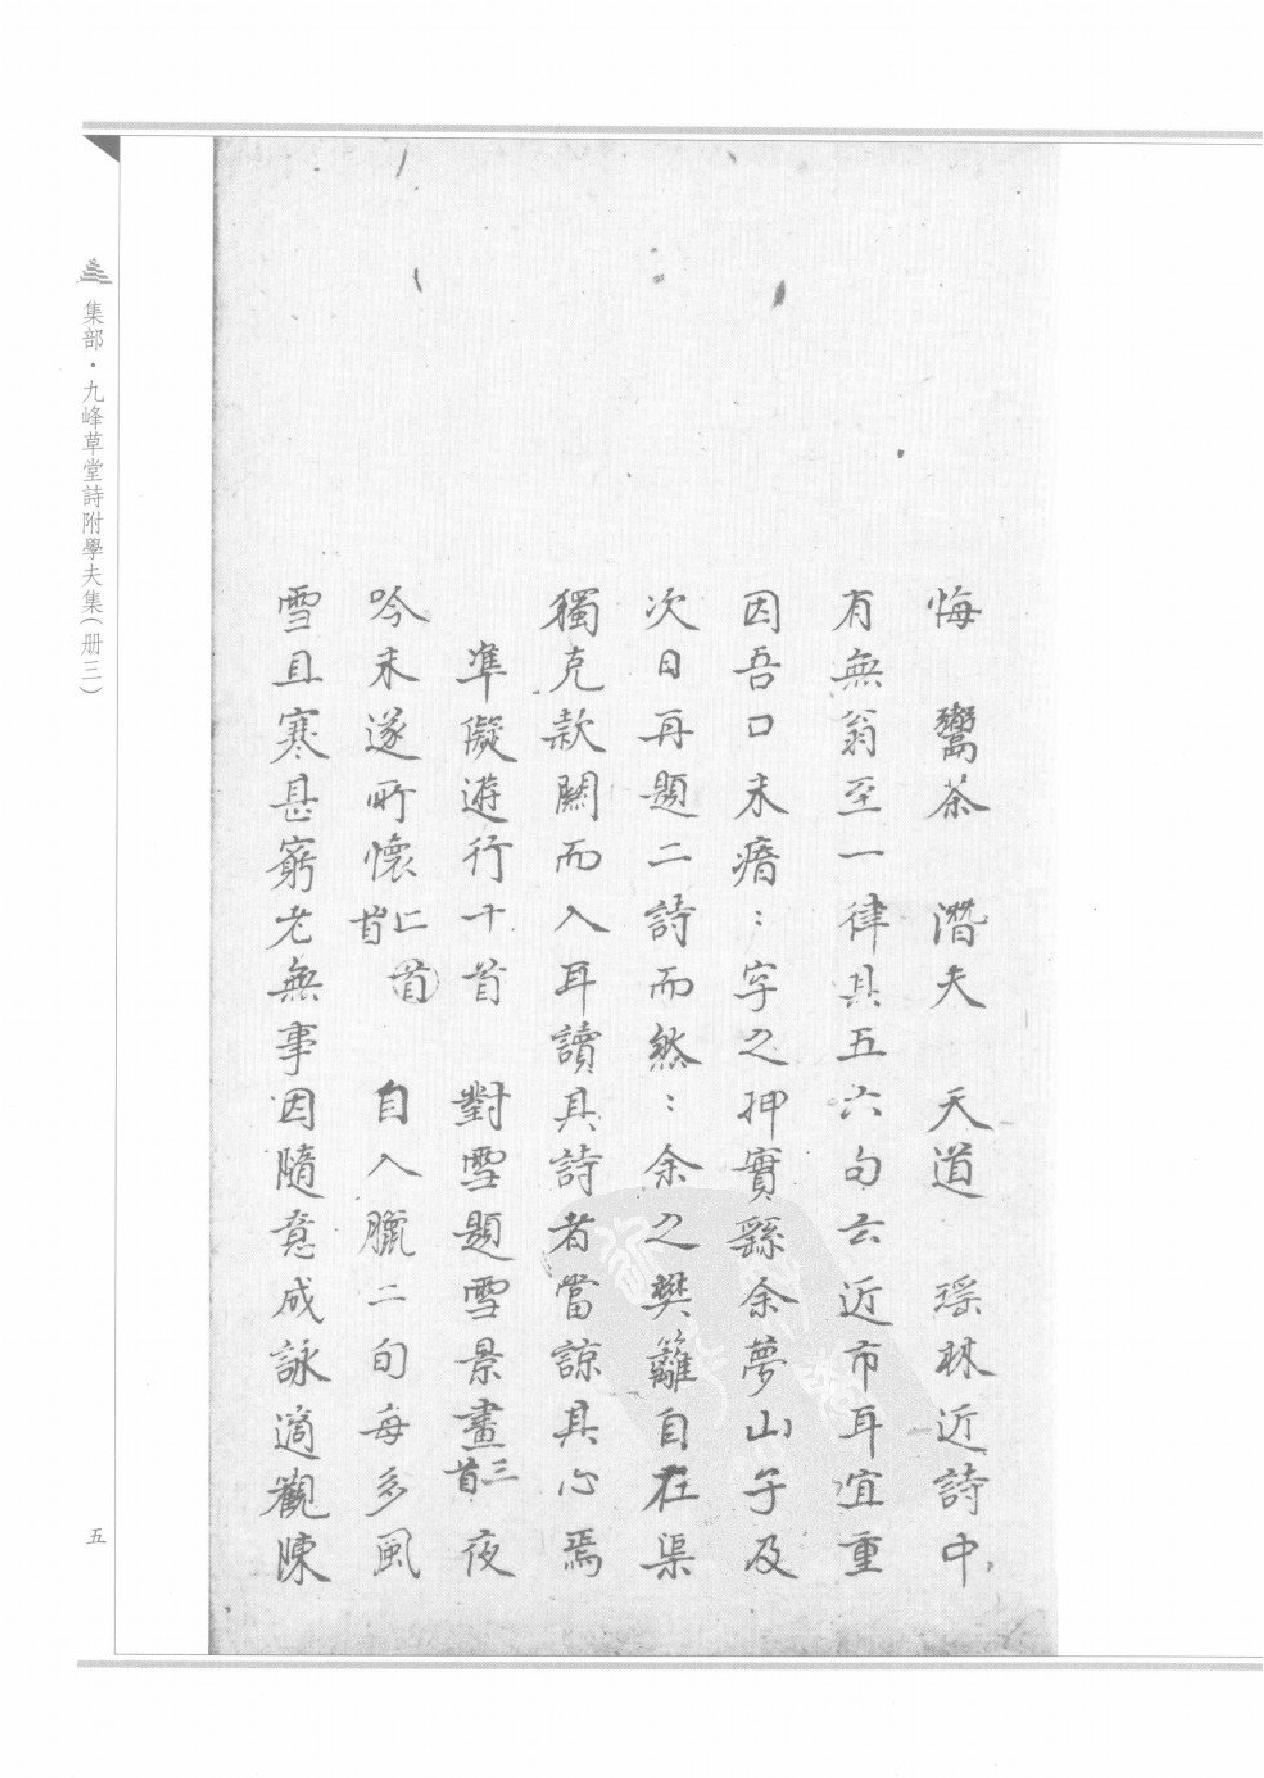 悔　鬻茶　潛夫　天道　瑶林近詩中
有無翁至一律其五六句云近市耳宜重
因吾口未瘖：字之押實繇余夢山子及
次日再題二詩而然：余之樊籬自在渠
獨克款關而入耳讀其詩者當諒其心焉
準儗遊行十首　對雪題雪景畫三首　夜
吟未遂所懷二首　首　自入臘二旬每多風
雪且寒甚窮老無事因隨意成詠適觀陳
集部・九峰草堂詩附學夫集（册三）
五